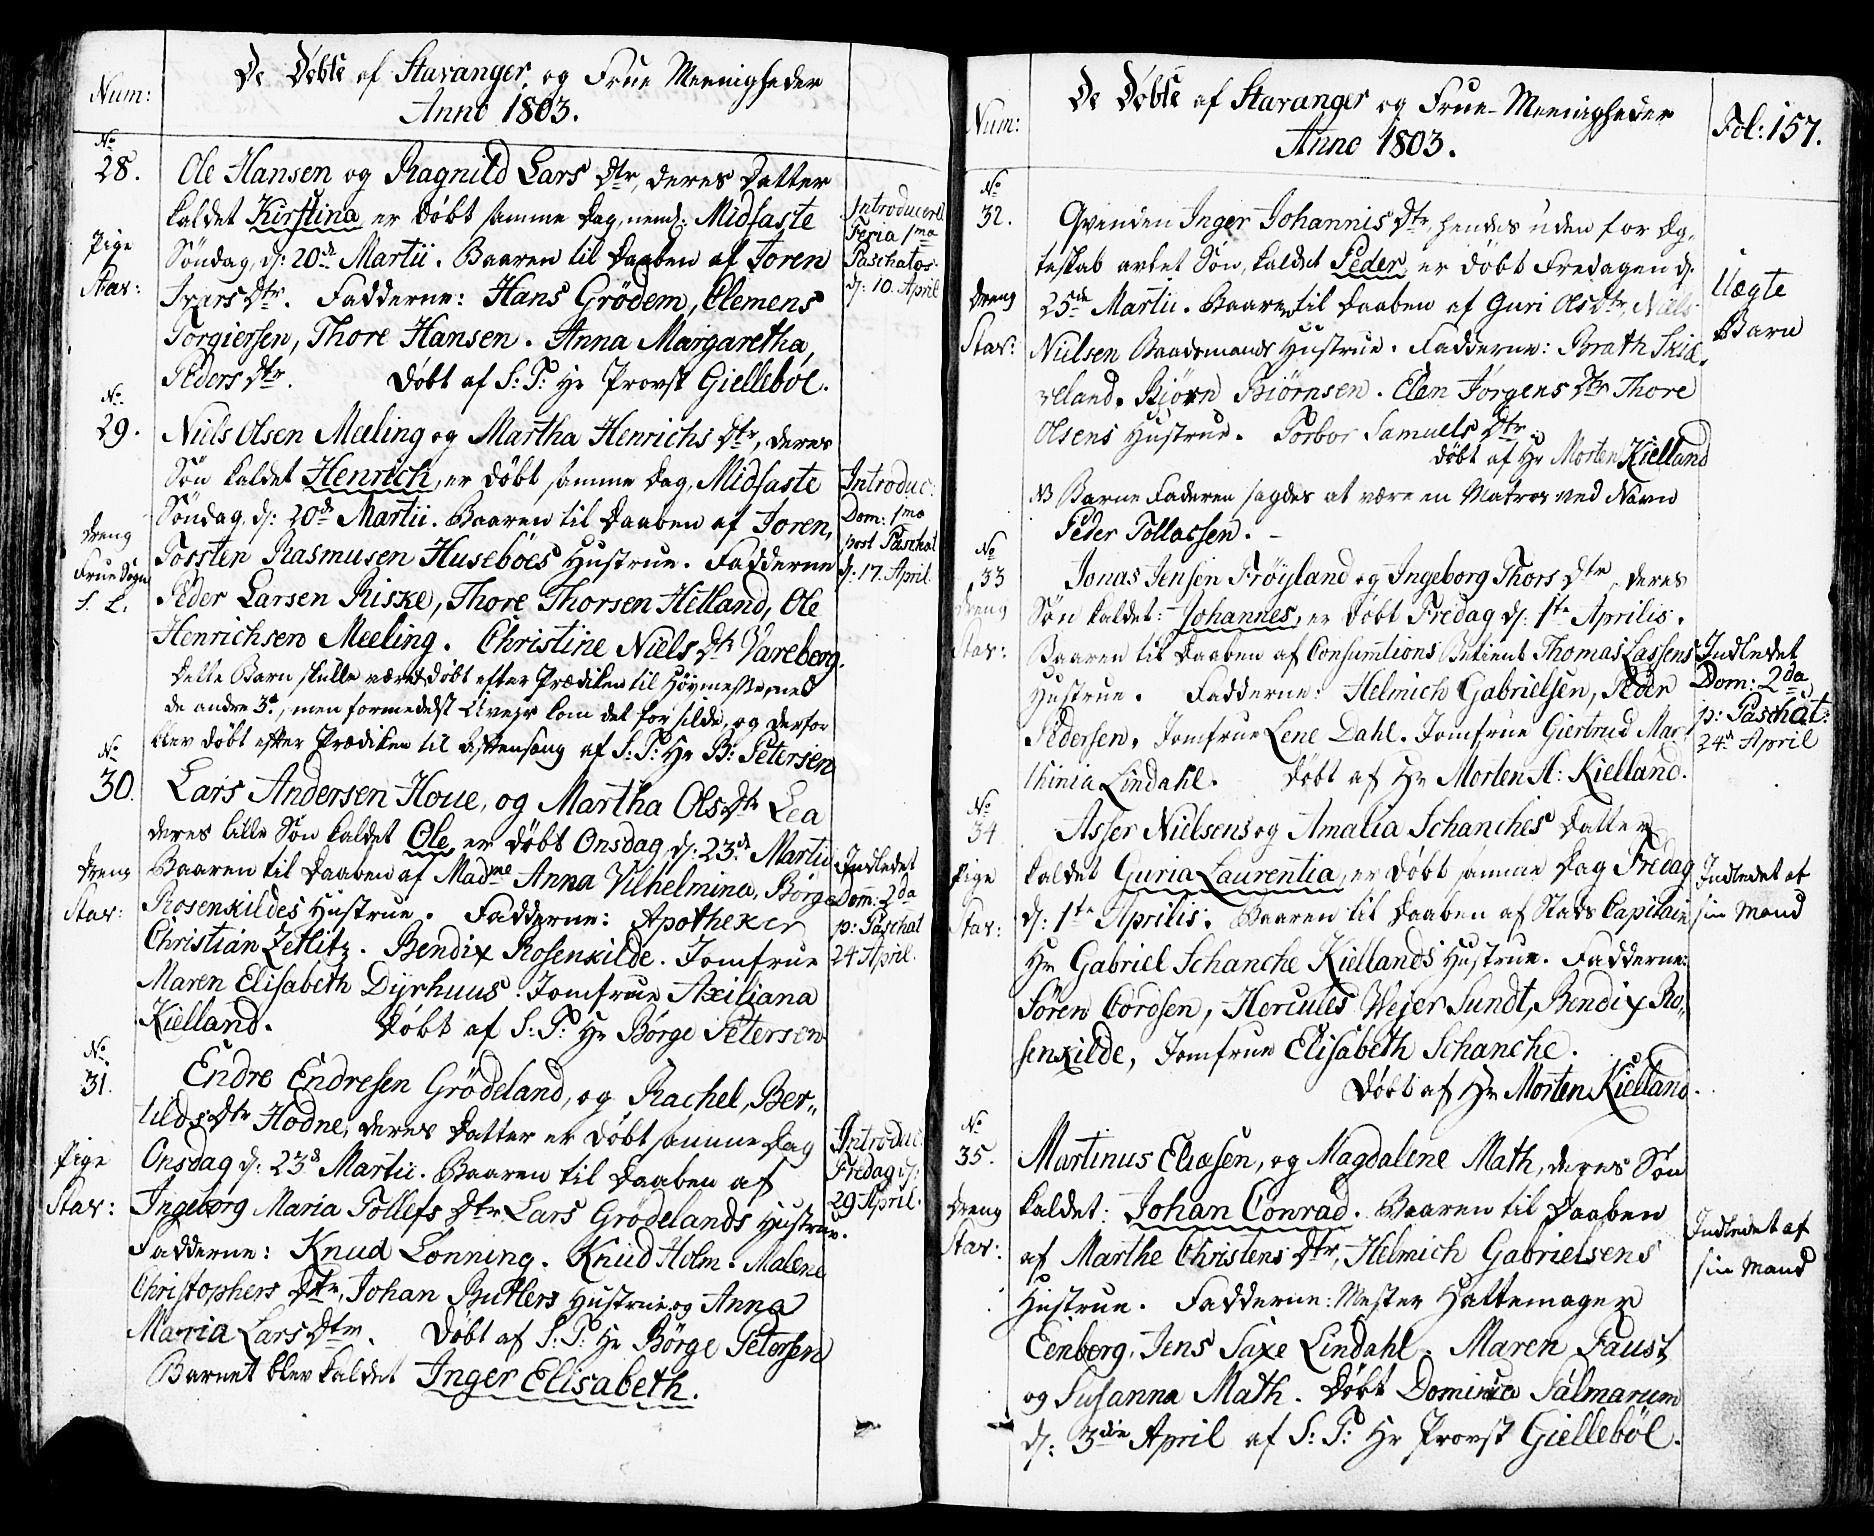 Num:
De Døbte af Stavanger og Frue Meenigheder
Anno 1803.
No
28.
Pige
Stav:
Ole Hansen og Ragnild Lars Dtr, deres Datter
kaldet Kirstina er døbt samme Dag, neml: Midfaste
Søndag, d: 20de Martii. Baaren til Daaben af Joren
Ivars Dtr. Fadderne: Hans Grödem, Clemens
Torgiersen, Thore Hansen. Anna Margaretha
Peders Dtr. Døbt af S: T: Hr Provst Giellebøl.
Introduceret
Feria 1ma
Paschatos
d: 10. April
No
29.
Dreng
Frue Sogn
S. L.
Niels Olsen Meeling og Martha Henrichs Dtr, deres
Søn kaldet Henrich, er døbt samme Dag, Midfaste
Søndag, d: 20de Martii. Baaren til Daaben af Joren,
Tossten Rasmusen Husebøes Hustrue. Fadderne
Peder Larsen Riske, Thore Thorsen Hetland, Ole
Henrichsen Meeling. Christine Niels Dtr Vareberg.
Dette Barn skulle været døbt efter Prædiken til Høymesse med
de andre 3de, men formedelst Uveyr kom det for silde, og derfor
blev døbt efter Prædiken til Aftensang af S: T: Hr B: Petersen
Introduc:
Dom: 1ma
post Paschat
d: 17. April.
No
30.
Dreng
Stav:
Lars Andersen Houe, og Martha Ols Dtr Lea
deres lille Søn kaldet Ole, er døbt Onsdag, d: 23de Martii
Baaren til Daaben af Madme Anna Vilhelmina, Børge
Rosenkildes Hustrue. Fadderne: Apotheker
Christian Zetlitz. Bendix Rosenkilde. Jomfrue
Maren Elisabeth Dyrhuus. Jomfrue Axiliana
Kielland. Døbt af S: T: Hr Børge Petersen
Indledet
Dom: 2da
p: Paschat
24 April.
No
31.
Pige
Stav:
Endre Endresen Grödeland, og Rachel, Ber„
tilds Dtr Hodne, deres Datter er døbt samme Dag
Onsdag d: 23de Martii. Baaren til Daaben af
Ingeborg Maria Tollefs Dtr Lars Grödelands Hustrue.
Fadderne: Knud Lonning. Knud Holm. Malene
Christophers Dtr, Johan Butlers Hustrue og Anna
Maria Lars Dtr. Døbt af S: T: Hr Børge Petersen
Barnet blev kaldet Inger Elisabeth.
Introduc:
Fredag d:
29 April.
Num:
De Døbte af Stavanger og Frue-Meenigheder
Anno 1803.
Fol: 157.
No
32.
Dreng
Stav:
Qvinden Inger Johannis Dtr, hendes uden for Æg„
teskab avlet Søn, kaldet Peder, er døbt Fredagen d:
25de Martii. Baaren til Daaben af Guri Ols Dtr, Niels
Nielsen Baadsmands Hustrue. Fadderne: Brath Skie„
veland. Bjørn Biörnsen. Elen Jörgens Dtr Thore
Olsens Hustrue. Torbor Samuels Dtr.
Døbt af Hr Morten Kielland
NB Barne Faderen sagdes at være en Matros ved Navn
Peder Tollassen.
Uægte
Barn
No
33
Dreng
Stav:
Jonas Jensen Fröyland og Ingeborg Thors Dtr, deres
Søn kaldet: Johannes, er døbt Fredag d: 1te Aprilis.
Baaren til Daaben af Consumtions Betient Thomas Lassens
Hustrue. Fadderne: Helmich Gabrielsen, Peder
Pedersen. Jomfrue Lene Dahl. Jomfrue Giertrud Mar
thinia Lindahl. Døbt af Hr Morten A: Kielland.
Indledet
Dom: 2da
p: Paschat:
24de April
No
34
Pige
Stav:
Asser Nielsens og Amalia Schanches Datter
kaldet Guria Laurentia, er døbt samme Dag Fredag
d: 1te Aprilis. Baaren til Daaben af Stads Capitain
Hr Gabriel Schanche Kiellands Hustrue. Fadderne:
Sören Cordsen, Hercules Weyer Sundt, Bendix Ro„
senkilde, Jomfrue Elisabeth Schanche.
Døbt af Hr Morten Kielland.
Indledet af
sin Mand
No
35.
Dreng
Stav:
Martinus Eliasen, og Magdalene Math, deres Søn
kaldet: Johan Conrad. Baaren til Daaben
af Marthe Christens Dtr, Helmich Gabrielsens
Hustrue. Fadderne: Mester Hattemager
Eenberg. Jens Saxe Lindahl. Maren Faust
og Susanna Math. Døbt Dominica Palmarum
d: 3die April af S: T: Hr Provst Giellebøl.
Indledet af
sin Mand